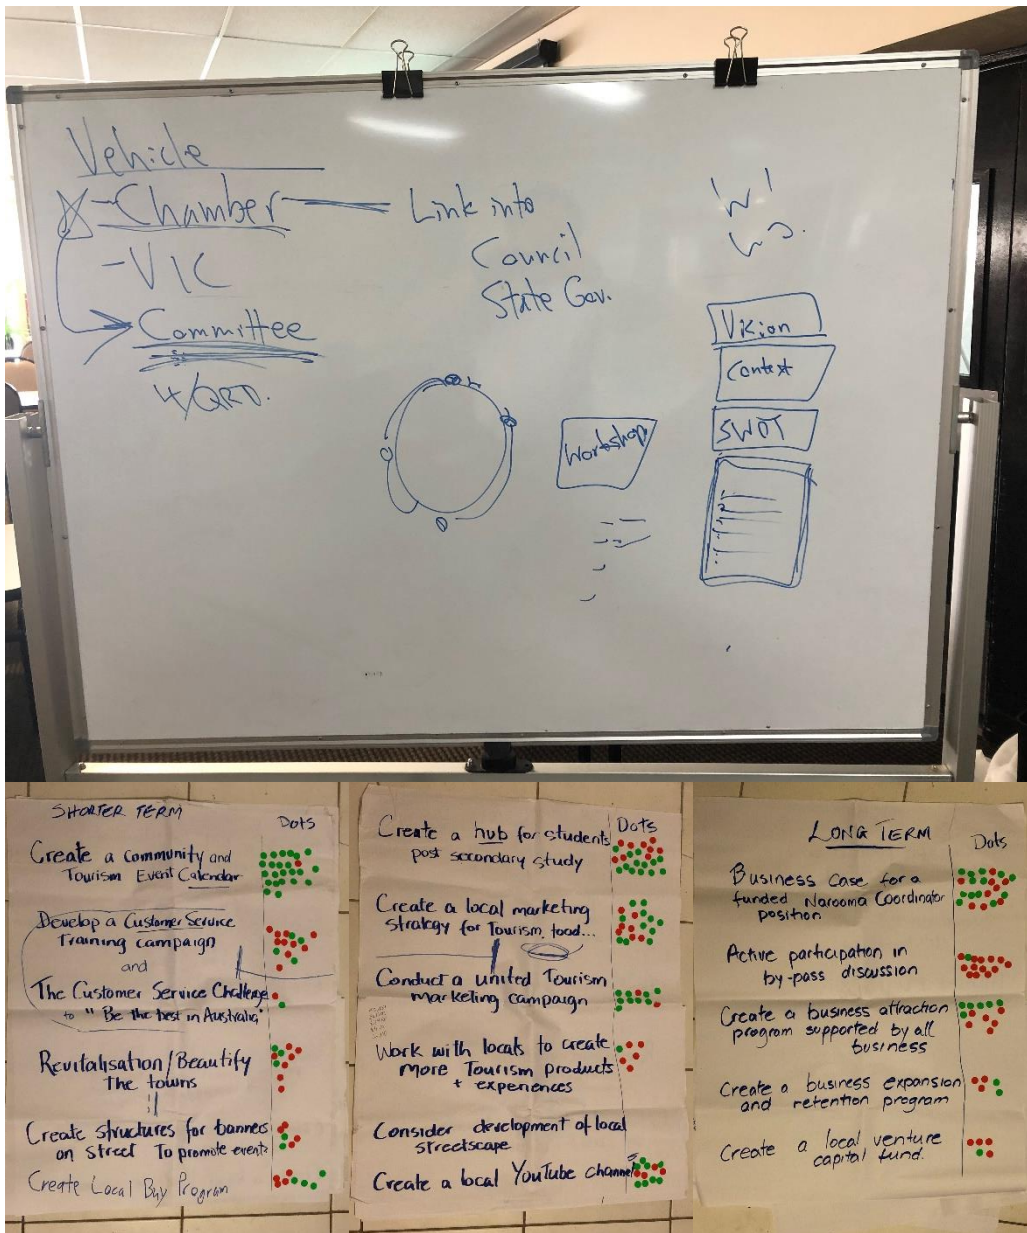 Vehicle
- Chamber — Link into
Council
State Gov.
- VIC
Committee
Vision
Context
SWOT
Workshop
SHORTER TERM
Dots
Create a Community and
Tourism Event Calendar
Develop a Customer Service
Training campaign
and
The Customer Service Challenge
to "Be the best in Australia"
Revitalisation/Beautify
The towns
Create structures for banners
on street To promote events
Create Local Buy Program
Dots
Create a hub for students
post secondary study
Create a local marketing
strategy for Tourism, food...
Conduct a united Tourism
marketing campaign
Work with locals to create
more Tourism products
+ experiences
Consider development of local
streetscape
Create a local YouTube channel
LONG TERM
Dots
Business case for a
funded Narooma Coordinator
position
Active participation in
by-pass discussion
Create a business attraction
program supported by all
business
Create a business expansion
and retention program
Create a local venture
capital fund.